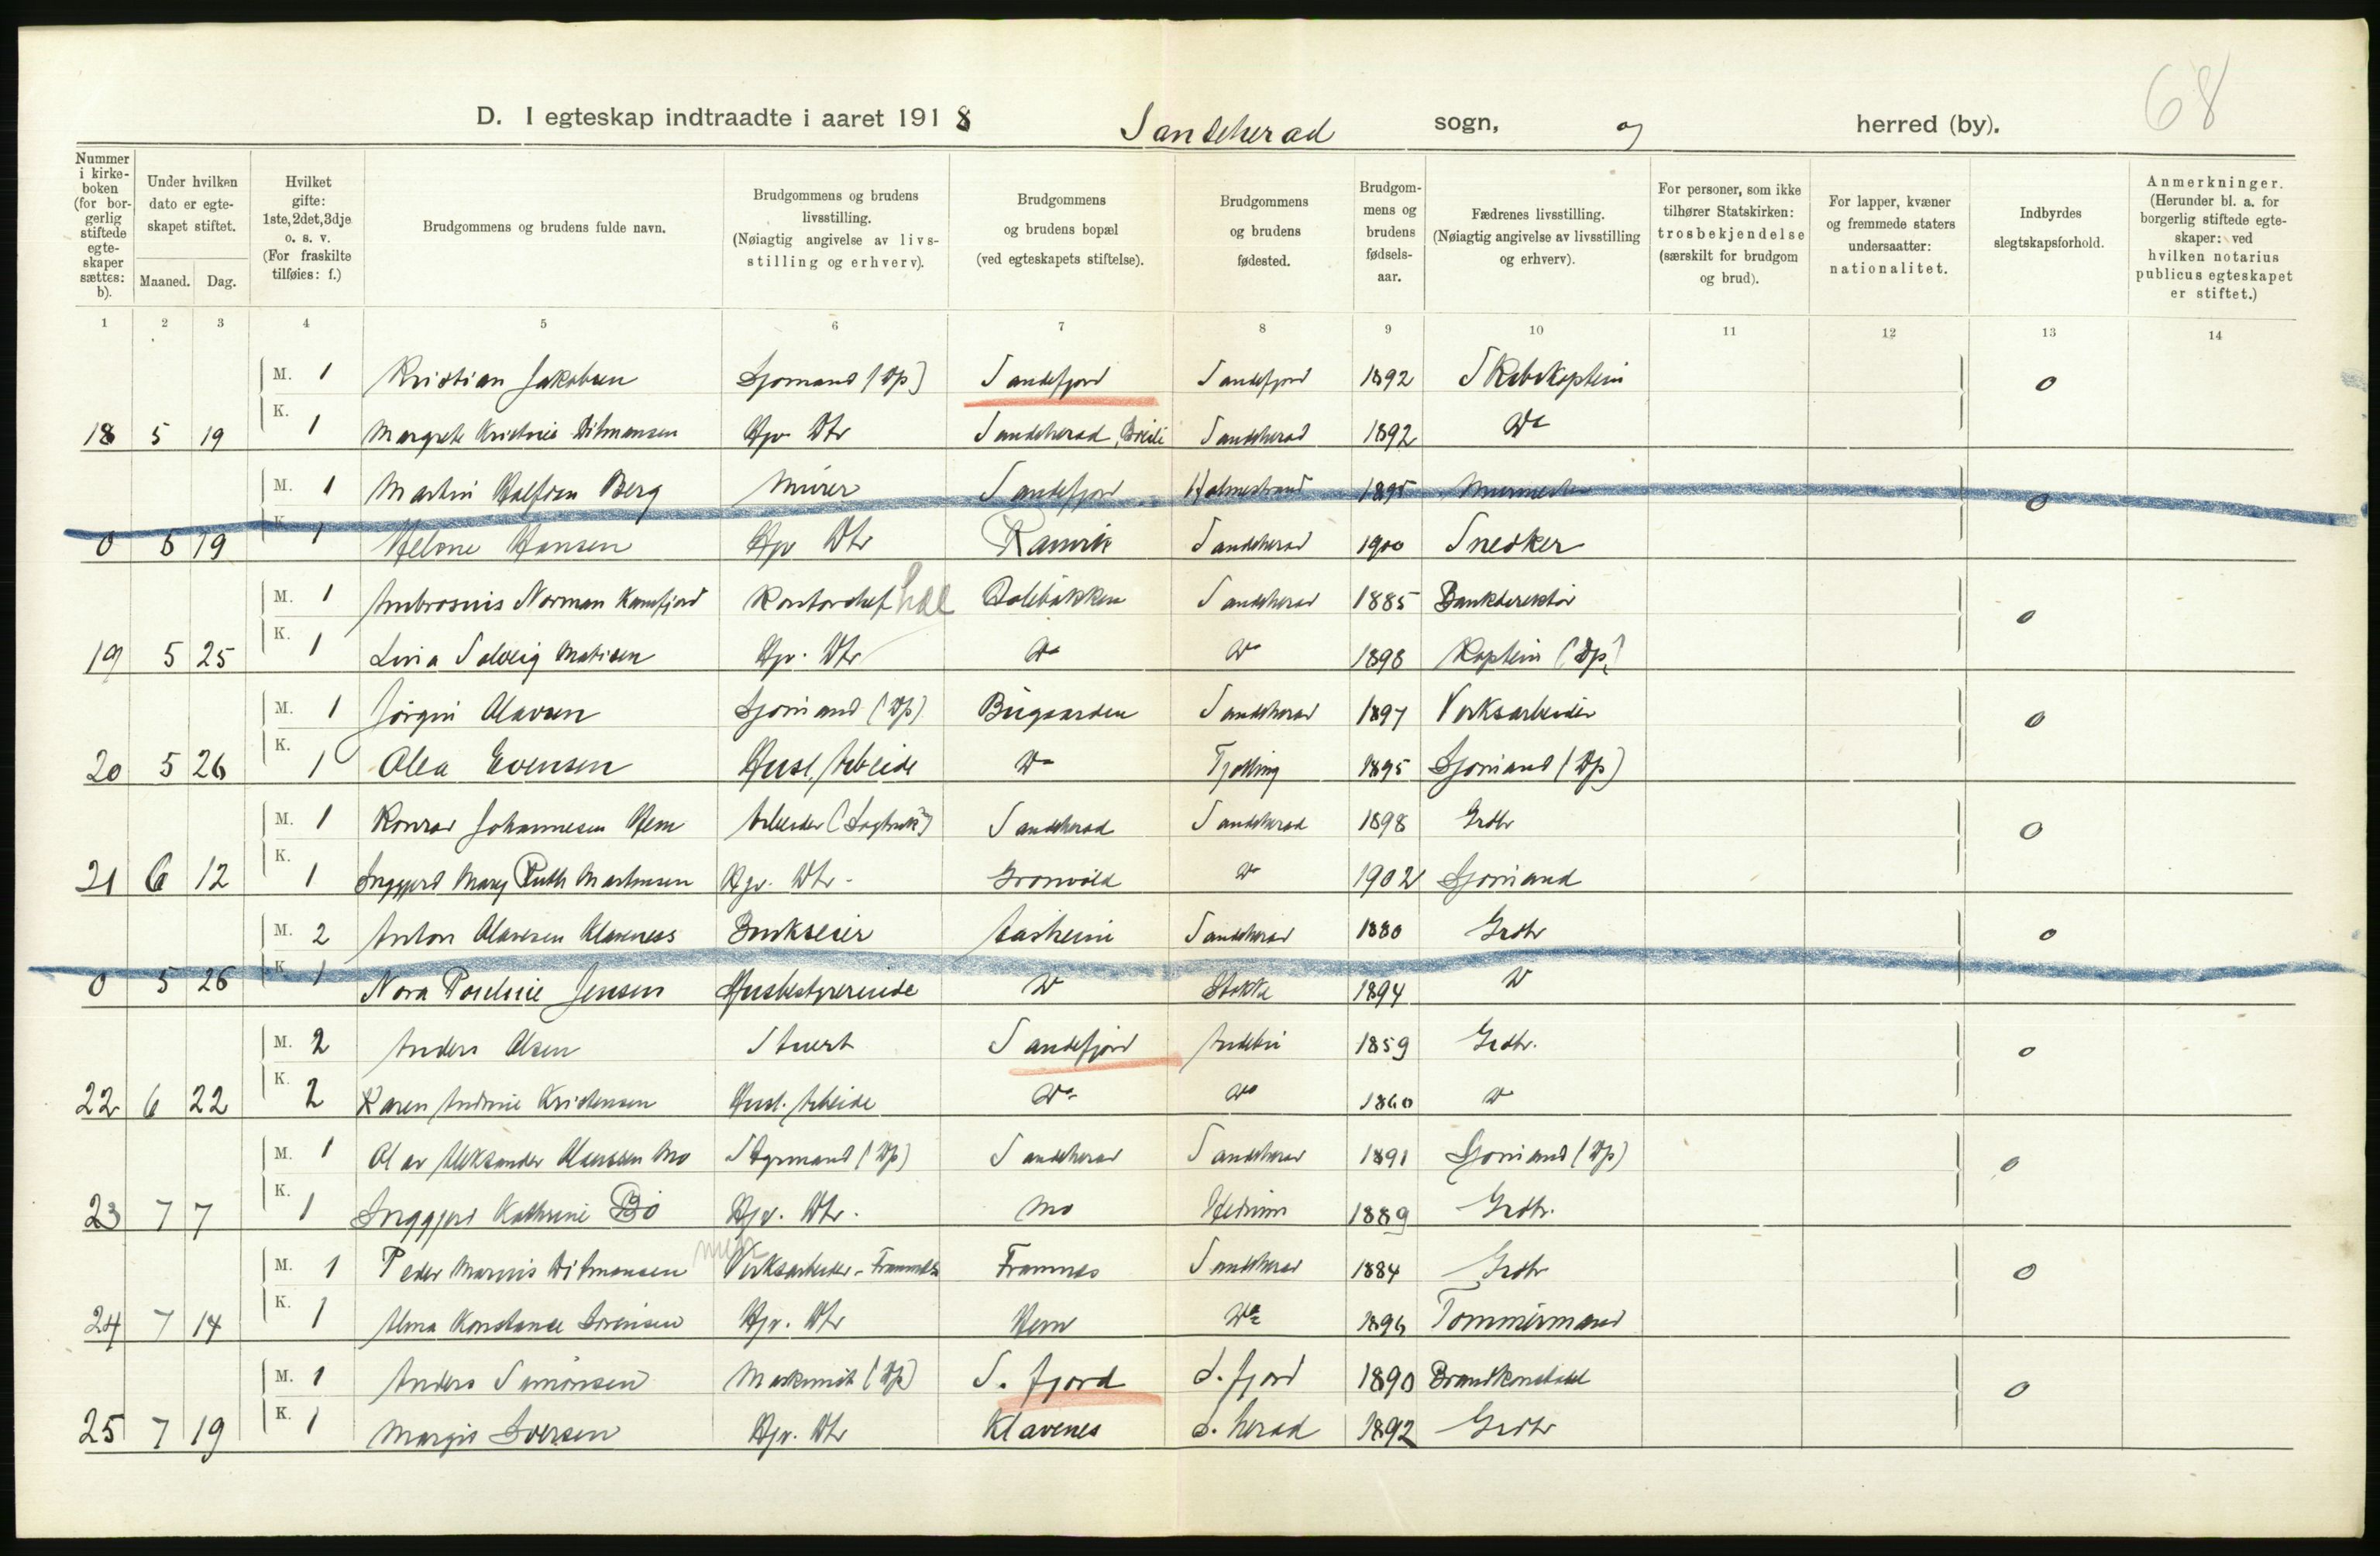 68
D. I egteskap indtraadte i aaret 1918 Sandeherad sogn, og herred (by).
Nummer i kirkeboken (for borgerlig stiftede egteskaper sættes: b).
Under hvilken dato er egteskapet stiftet.
Maaned. Dag.
Hvilket gifte: 1ste, 2det, 3dje o. s. v. (For fraskilte tilføies: f.)
Brudgommens og brudens fulde navn.
Brudgommens og brudens livsstilling. (Nøiagtig angivelse av livsstilling og erhverv).
Brudgommens og brudens bopæl (ved egteskapets stiftelse).
Brudgommens og brudens fødested.
Brudgommens og brudens fødselsaar.
Fædrenes livsstilling. (Nøiagtig angivelse av livsstilling og erhverv).
For personer, som ikke tilhører Statskirken: trosbekjendelse (særskilt for brudgom og brud).
For lapper, kvæner og fremmede staters undersaatter: nationalitet.
Indbyrdes slegtskapsforhold.
Anmerkninger. (Herunder bl. a. for borgerlig stiftede egteskaper: ved hvilken notarius publicus egteskapet er stiftet.)
1 2 3 4 5 6 7 8 9 10 11 12 13 14
M. 1 Kristian Jakobsen Sjomand (Dp) Sandefjord Sandefjord 1892 Skibskaptein 0
18 5 19 K. 1 Margrete Kristine Ditmansen Hjv Dtr Sandeherad, Sandeherad 1892 Do
M. 1 Martin Halfdan Berg Murer Sandefjord Holmestrand 1895 Murmester 0
0 5 19 K. 1 Helene Hansen Hjv Dtr Ranvik Sandeherad 1900 Snedker
M. 1 Ambrosius Norman Kamfjord Kontorchef Sandeherad 1885 Bankdirektør 0
19 5 25 K. 1 Solveig Matisen Hjv. Dtr Do Do 1898 Kaptein (Dp)
M. 1 Jörgen Olavsen Sjomand (Dp) Bugaarden Sandeherad 1897 Verksarbeider 0
20 5 26 K. 1 Olea Evensen Husl. Arbeide Do Tjolling 1895 Sjomand (Dp)
M. 1 Konrad Johannesen Hem Arbeider Sandeherad Sandeherad 1898 Grdbr 0
21 6 12 K. 1 Inggjerd Mary Ruth Martinsen Hjv. Dtr. Gronvold Do 1902 Sjomand
M. 2 Anton Olavesen Klavness Bruksеier Aasheim Sandeherad 1880 Grdbr 0
0 5 26 K. 1 Nora Jensen Husbestyrerinde D Stokke 1894 D
M. 2 Anders Olsen Stuert Sandefjord Andebu 1859 Grdbr. 0
22 6 22 K. 2 Karen Andrine Kristensen Husl. Arbeide Do Do 1860 D
M. 1 Olav Aleksander Mo Styrmand (Dp) Sandeherad Sandeherad 1891 Sjomand (Dp) 0
23 7 7 K. 1 Inggjerd Kathrine Bö Hjv. Dtr. Mo Hedrum 1889 Grdbr.
M. 1 Peder Marius Ditmansen Verksarbeider - Framnæs Framnes Sandeherad 1884 Grdbr 0
24 7 14 K. 1 Alma Konstance Sorensen Hjv. Dtr Hem Do 1896 Tommermand
M. 1 Anders Simonsen Maskinist (Dp) S. fjord S. fjord 1890 Brandkonstabel 0
25 7 19 K. 1 Margit Iversen Hjv. Dtr Klavenes S. herad 1892 Grdbr